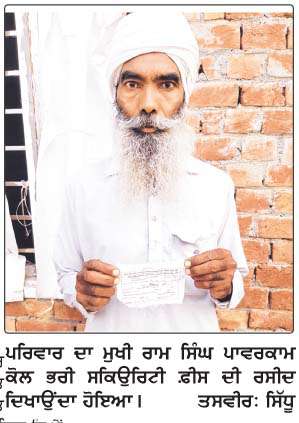 ਪਰਿਵਾਰ ਦਾ ਮੁਖੀ ਰਾਮ ਸਿੰਘ ਪਾਵਰਕਾਮ
ਕੋਲ ਭਰੀ ਸਕਿਉਰਿਟੀ ਫ਼ੀਸ ਦੀ ਰਸੀਦ
ਦਿਖਾਉਂਦਾ ਹੋਇਆ। ਤਸਵੀਰ: ਸਿੱਧੂ